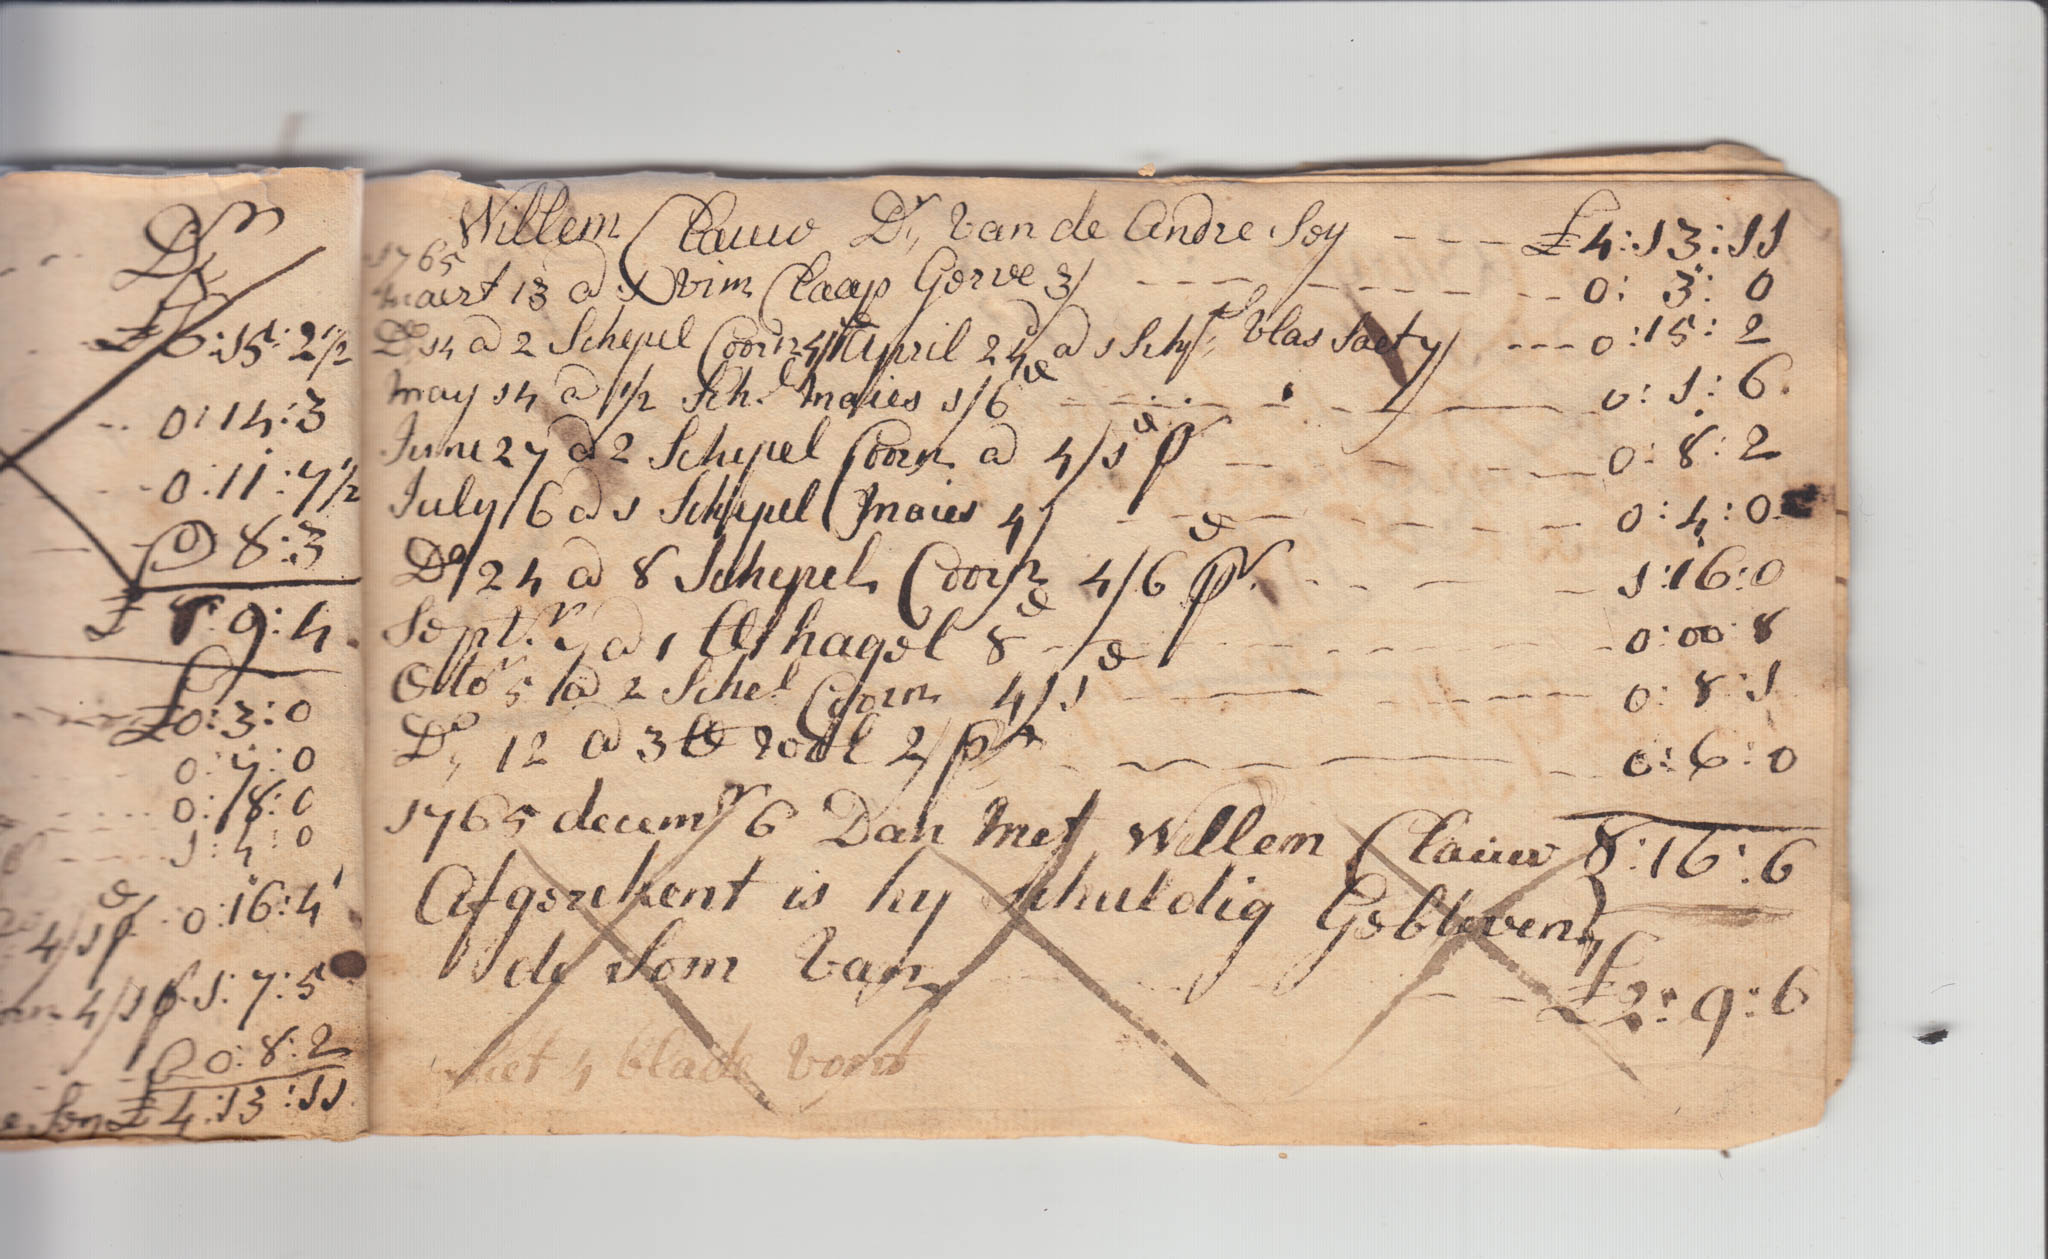 Dr
£6:15:2½
0:14:3
0:11:7½
0 8:3
£ 8:9:4
£0:3:0
0:7:0
0:18:0
1:4:0
4/1 p 0:16:4
4/1 p 1:7:5
0:8:2
Soy £4:13:11
Willem Clauw Dr Van de Andre Soy £4:13:11
1765
Maert 13 @ 1 Vim Claap Gerve 3/ 0: 3: 0
Do 14 @ 2 Schepel Coorn 4/1d April 24 @ 1 Schpl Vlas Saet 7/ 0:15:2
May 14 @ 1/2 Schl Maies 1/6d 0:1:6
June 27 @ 2 Schepel Coorn @ 4/1d pr 0:8:2
July 6 @ 1 Schepel Maies 4/ 0:4:0
Do 24 @ 8 Schepel Coorn 4/6d pr 1:16:0
Septr 7 @ 1 lb hagel 8d 0:00:8
Octor 5 @ 2 Schel Coorn 4/1d 0:8:1
Do 12 @ 3 lb 2/ pr 0:6:0
1765 decemr 6 Dan Met Willem Clauw 8:16:6
Afgerekent is hy schuldig Gebleven
de Som Van £2:9:6
het 4 blade Vort